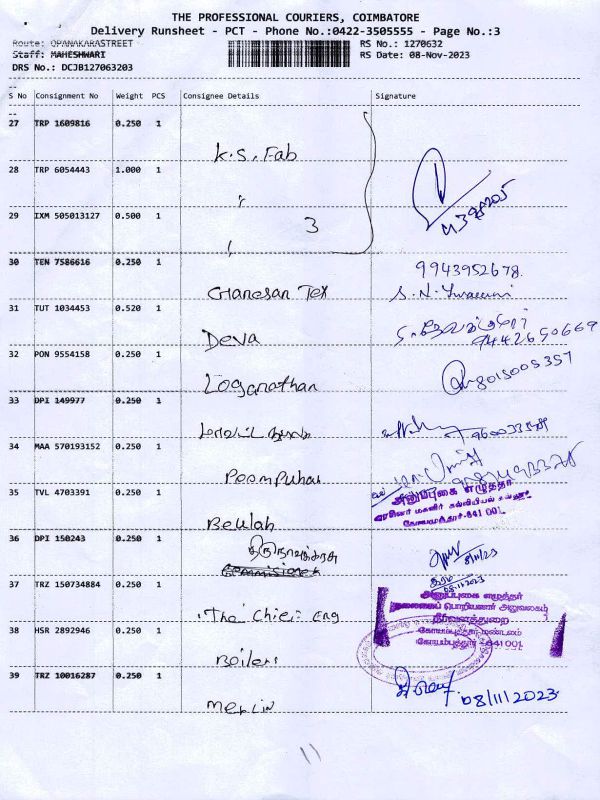 THE PROFESSIONAL COURIERS, COIMBATORE
Delivery Runsheet - PCT - Phone No.:0422-3505555 - Page No.:3
Route: OPANAKARASTREET RS No.: 1270632
Staff: MAHESHWARI RS Date: 08-Nov-2023
DRS No.: DCJB127063203
S No Consignment No Weight PCS Consignee Details Signature
27 TRP 1609816 0.250 1
K.S. Fab
28 TRP 6054443 1.000 1
29 IXM 505013127 0.500 1
3
30 TEN 7586616 0.250 1
9943952678.
Ganesan Tex
31 TUT 1034453 0.520 1
Deva 9442650669
32 PON 9554158 0.250 1
Loganathan 8015005357
33 DPI 149977 0.250 1
34 MAA 570193152 0.250 1
Poompuhar
35 TVL 4703391 0.250 1
அனுப்புகை எழுத்தர்
கோயமுத்தூர்-641 001.
Beulah
36 DPI 150243 0.250 1
திருநாவுக்கரசு
37 TRZ 150734884 0.250 1
அனுப்புகை எழுத்தர்
தலைமைப் பொறியாளர் அலுவலகம்
நீர்வளத்துறை
The Chief Eng
கோயம்புத்தூர் மண்டலம்
38 HSR 2892946 0.250 1
கோயம்புத்தூர் - 641 001
Boilers
39 TRZ 10016287 0.250 1
08/11/2023
Merlin
11